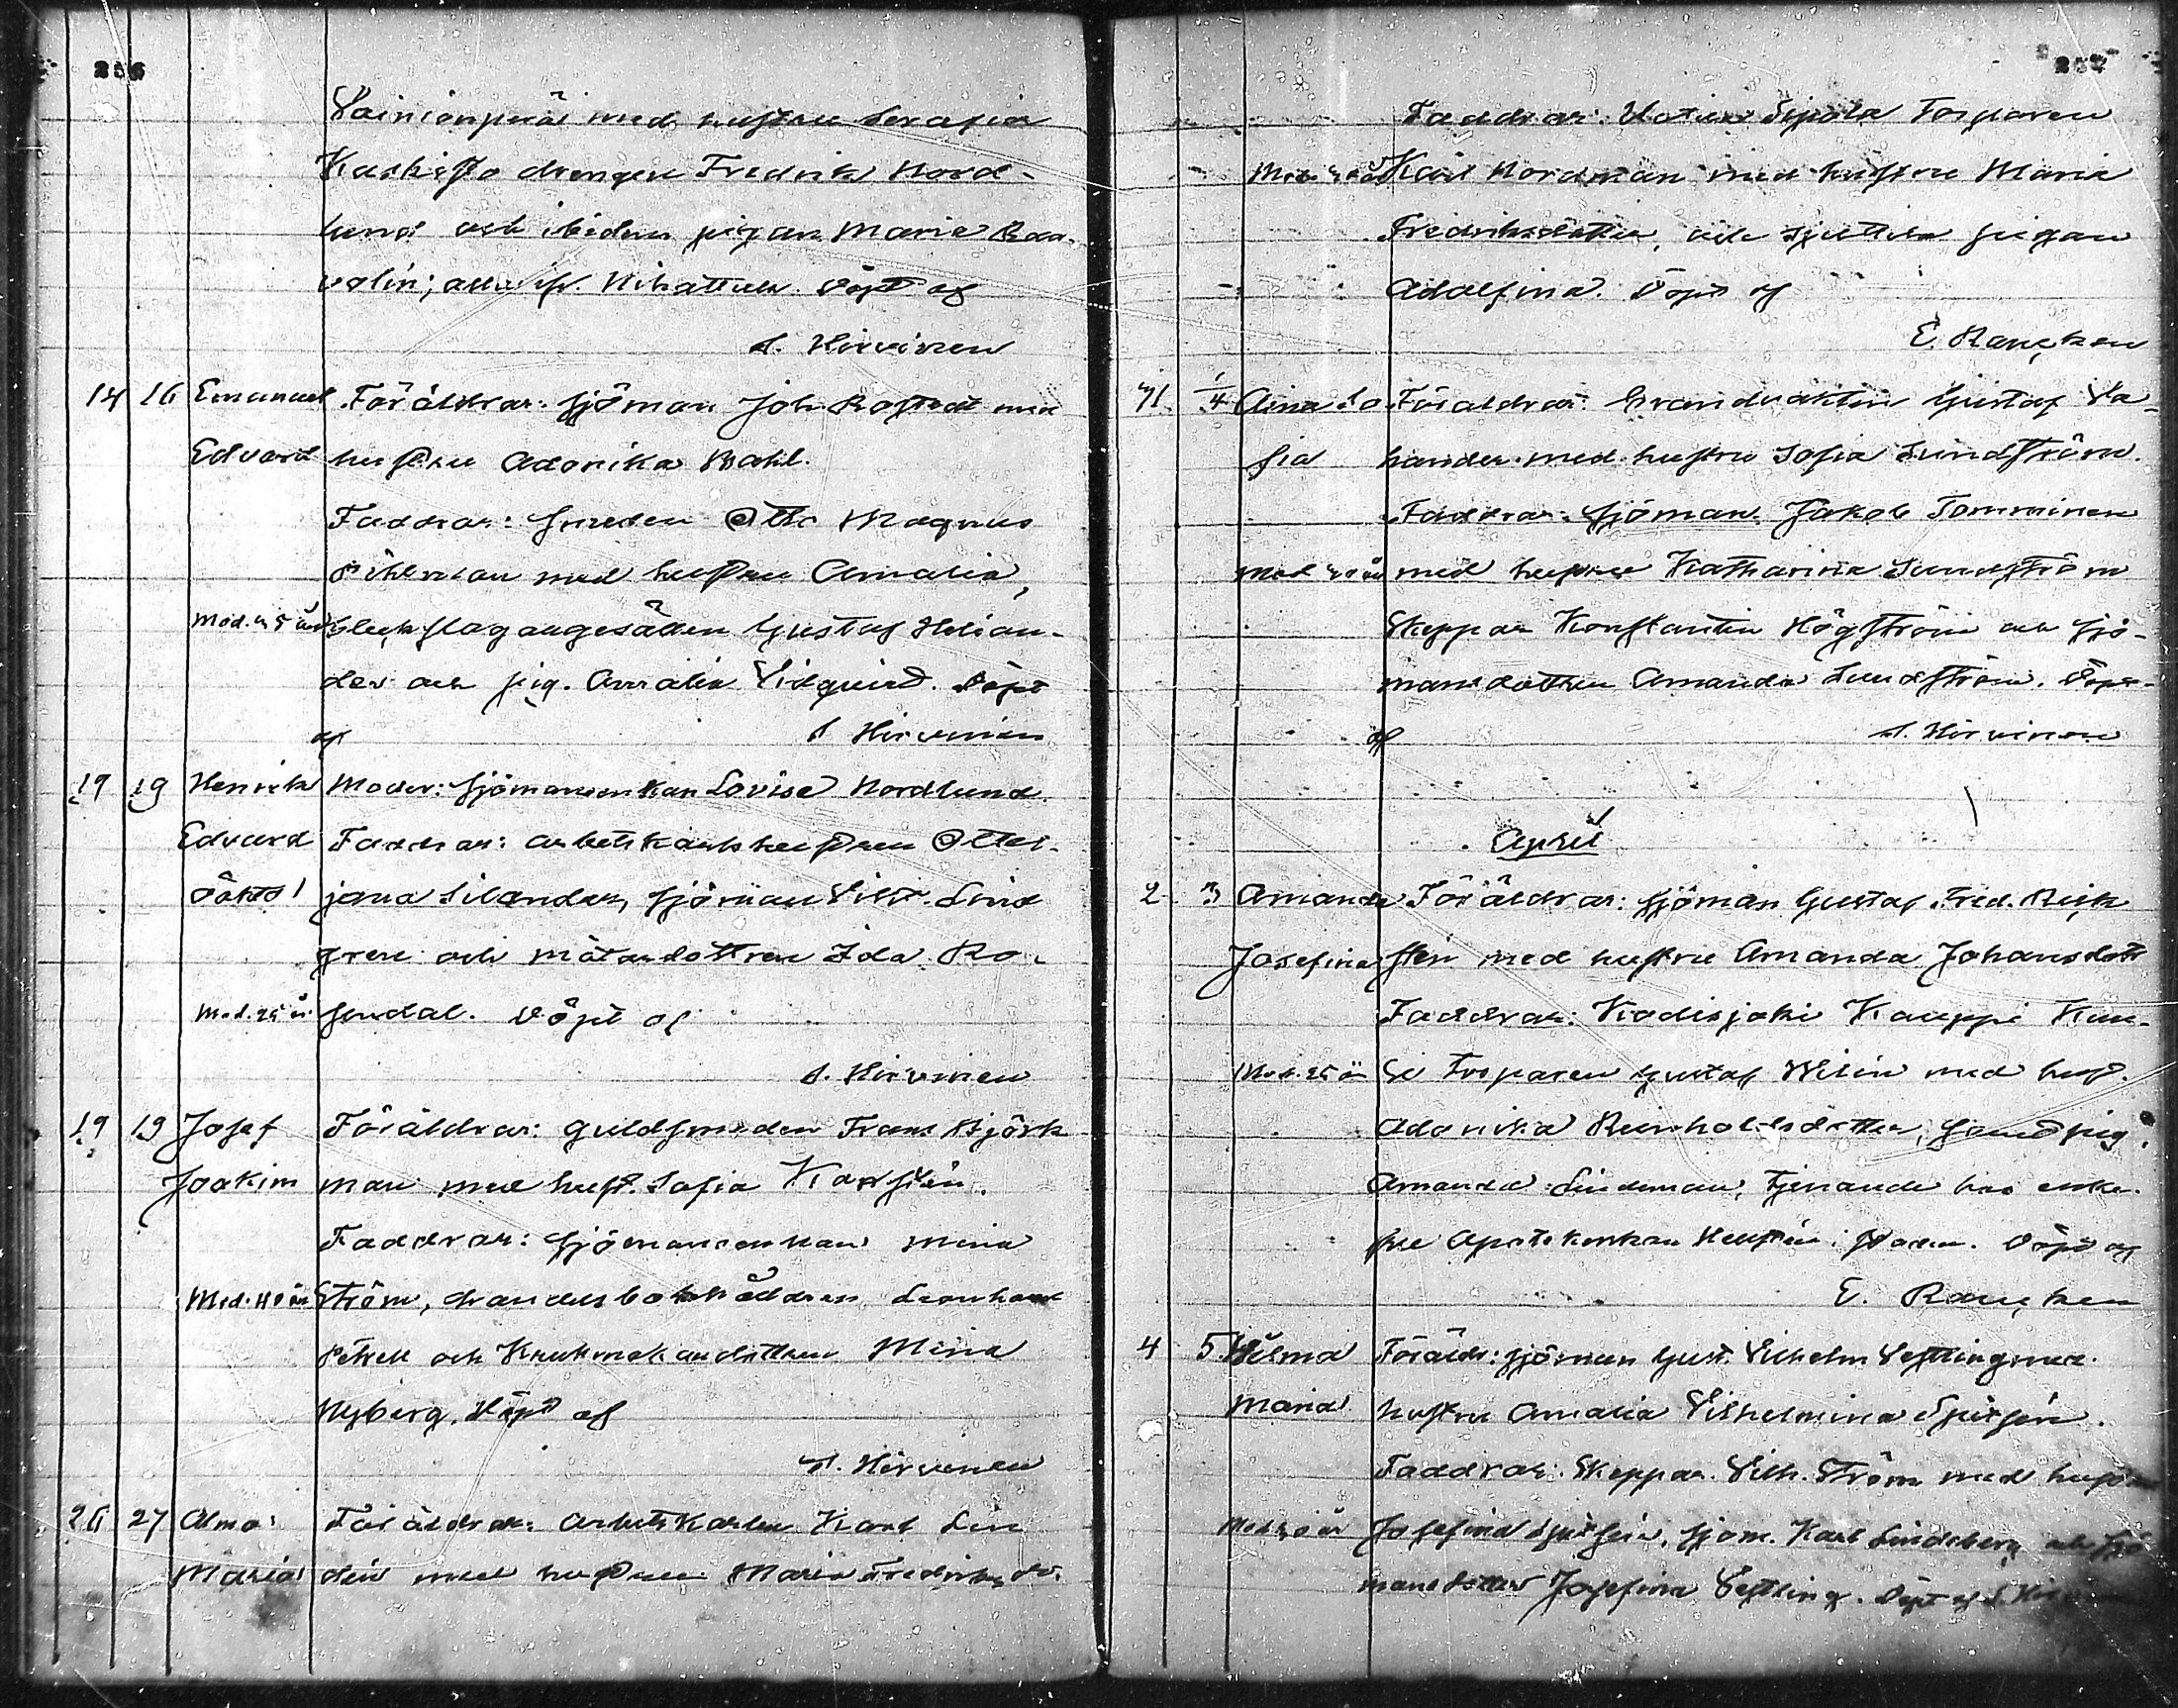 256
Vainionperä med hustru Serafia
Kaskisto drengen Fredrik Nord-
lund och ibidem pigan Maria
valin; alla fr. Nihattula. Döpt af
S. Hirvinen
14 16 Emanuel Föräldrar: sjöman Joh. Rostedt med
Edvard hustru Adorika Wahl.
Faddrar: smeden Otto Magnus
Pihlman med hustru Amalia,
Mod. år bleckslagaregesällen Gustaf Helian-
der och pig. Amalia Vidqvist. Döpt
af S Hirvinen
19 19 Henrik Moder: sjömansenkan Lovisa Nordlund.
Edvard Faddrar: arbetskarlshustrun Ottil-
oäkta! jana Silander, sjöman Vikt. Lind
gren och mätaredottren Ida Ro-
Mod. 25 år sendal. Döpt af
S. Hirvinen
19 19 Josef Föräldrar: guldsmeden Frans Björk
Joakim man med hust. Sofia Karstén.
Faddrar: sjömansenkan Mina
Mod. 40 år Ström, handelsbokhållaren Leonhard
Petrell och Krukmakaredottren Mina
Nyberg. Döpt af
S. Hirvinen
26 27 Alma Föräldrar: Arbetskarlen Karl Lin
Maria dén med hustrun Maria Fredriksdr.
257
Faddrar: Sipola Torparen
Mod. år Karl Nordman med hustru Maria
Fredriksdotter, och pigan
Adolfina. Döpt af
E. Rancken
31 1/4 Aina So Föräldrar: brandvakten Gustaf Sa-
fia lander med hustru Sofia Lundström.
Faddrar: sjöman Jakob Tomminen
Mod år med hustru Katharina Lundström
Skeppar Konstantin Högström och sjö-
mansdottren Amanda Lundström. Döpt
af S. Hirvinen
April
2 3 Amanda Föräldrar: sjöman Gustaf Fred. Rick
Josefina sten med hustru Amanda Johansdotr
Faddrar: Kadisjoki Kauppi
Mod. 25 år Torparen Gustaf Wilén med hust.
Adorika Reinholdsdotter, samt pig.
Amanda Lindeman, tjenande hos enke-
fru i staden. Döpt af
E. Rancken
4 5 Hilma Föräldr: sjöman Gust. Vilhelm Vestling med
Maria hustru Amalia Vilhelmina
Faddrar: Skeppar Vilh. Ström med hust
Mod år Josefina sjöm. Karl Lindeberg och sjö
mansdotter Josefina Vestling. Döpt af S. Hirvinen